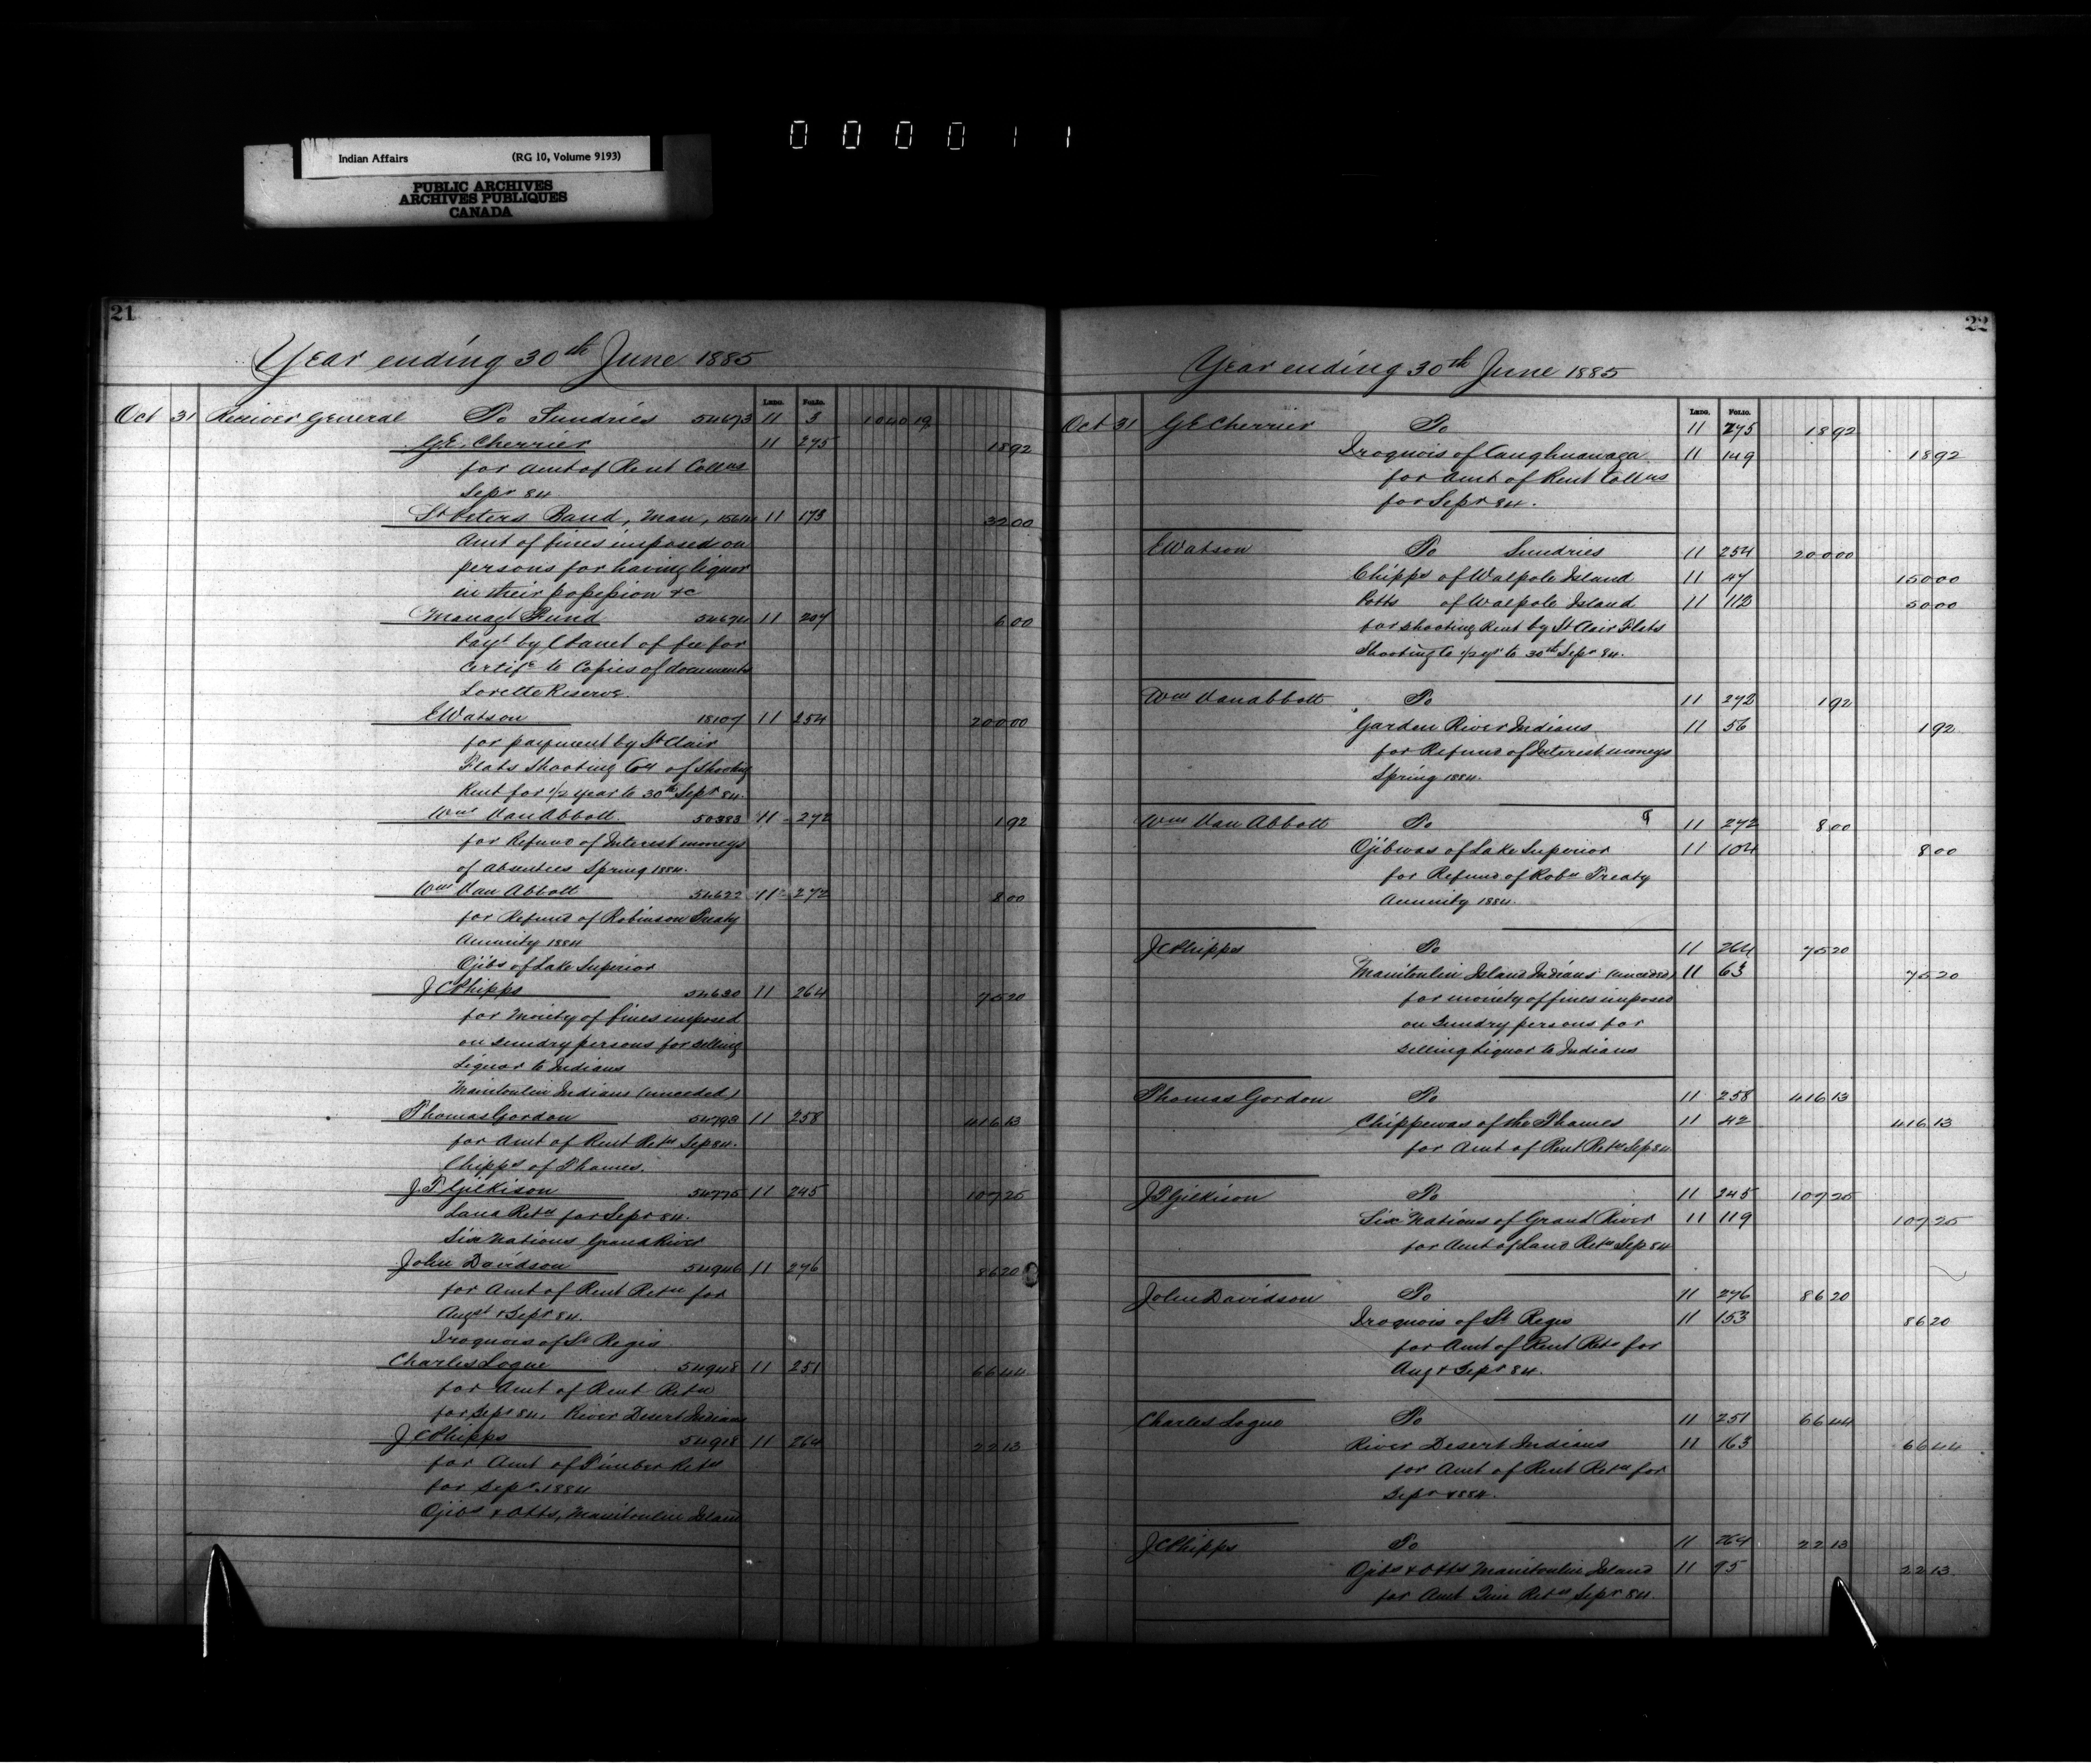 000011
Indian Affairs (RG 10, Volume 9193)
PUBLIC ARCHIVES
ARCHIVES PUBLIQUES
CANADA
21
Year ending 30th June 1885
Ledg. Folio.
Oct 31 Receiver General To Sundries 54673 11 3 1040 19
G.E. Cherrier 11 275 18 92
for Amt of Rent Collns
Sepr 84
St Peters Band, Man, 11 173 32 00
Amt of fines imposed on
persons for having liquor
in their possession &c
Managt Fund 54674 11 207 6 00
Payt by of fee for
Certife to Copies of documents
Lorette Reserve.
E Watson 18107 11 254 200 00
for payment by St Clair
Flats Shooting Coy of Shooting
Rent for 1/2 year to 30th Sepr 84.
Wm Van Abbott 50383 11 272 1 92
for Refund of Interest moneys
of absentees Spring 1884.
Wm Van Abbott 54622 11 272 8 00
for Refund of Robinson Treaty
Annuity 1884
Ojibs of Lake Superior
J C Phipps 54630 11 264 75 20
for Moiety of fines imposed
on sundry persons for selling
Liquor to Indians
Manitoulin Indians (unceded)
Thomas Gordon 54793 11 258 416 13
for Amt of Rent Retn Sep 84.
Chipps of Thames.
J.T Gilkison 54775 11 245 107 25
Land Retn for Sepr 84.
Six Nations Grand River
John Davidson 54946 11 276 86 20
for Amt of Rent Retn for
Augt & Sepr 84.
Iroquois of St Regis
Charles Logue 54948 11 251 66 44
for Amt of Rent Retn
for Sepr 84. River Desert Indians
J C Phipps 54918 11 264 22 13
for Amt of Timber Retn
for Sepr 1884
Ojibs & Otts, Manitoulin Island
22
Year ending 30th June 1885
Ledg. Folio.
Oct 31 G E Cherrier To 11 275 18 92
Iroquois of Caughnawaga 11 149 18 92
for Amt of Rent Collns
for Sepr 84.
E Watson To Sundries 11 254 200 00
Chipps of Walpole Island 11 47 150 00
Potts of Walpole Island 11 112 50 00
for shooting Rent by St Clair Flats
Shooting Co 1/2 yr to 30th Sepr 84.
Wm Van Abbott To 11 272 1 92
Garden River Indians 11 56 1 92
for Refund of Interest moneys
Spring 1884.
Wm Van Abbott To 11 272 8 00
Ojibwas of Lake Superior 11 104 8 00
for Refund of Robn Treaty
Annuity 1884.
J C Phipps To 11 264 75 20
Manitoulin Island Indians (unceded) 11 63 75 20
for moiety of fines imposed
on sundry persons for
selling Liquor to Indians
Thomas Gordon To 11 258 416 13
Chippewas of the Thames 11 42 416 13
for Amt of Rent Retn Sep 84
J T Gilkison To 11 245 107 25
Six Nations of Grand River 11 119 107 25
for Amt of Land Retn Sep 84
John Davidson To 11 276 86 20
Iroquois of St Regis 11 153 86 20
for Amt of Rent Retn for
Aug & Sepr 84.
Charles Logue To 11 251 66 44
River Desert Indians 11 163 66 44
for Amt of Rent Retn for
Sepr 1884.
J C Phipps To 11 264 22 13
Ojibs & Otts Manitoulin Island 11 95 22 13
for Amt Tim Retn Sepr 84.